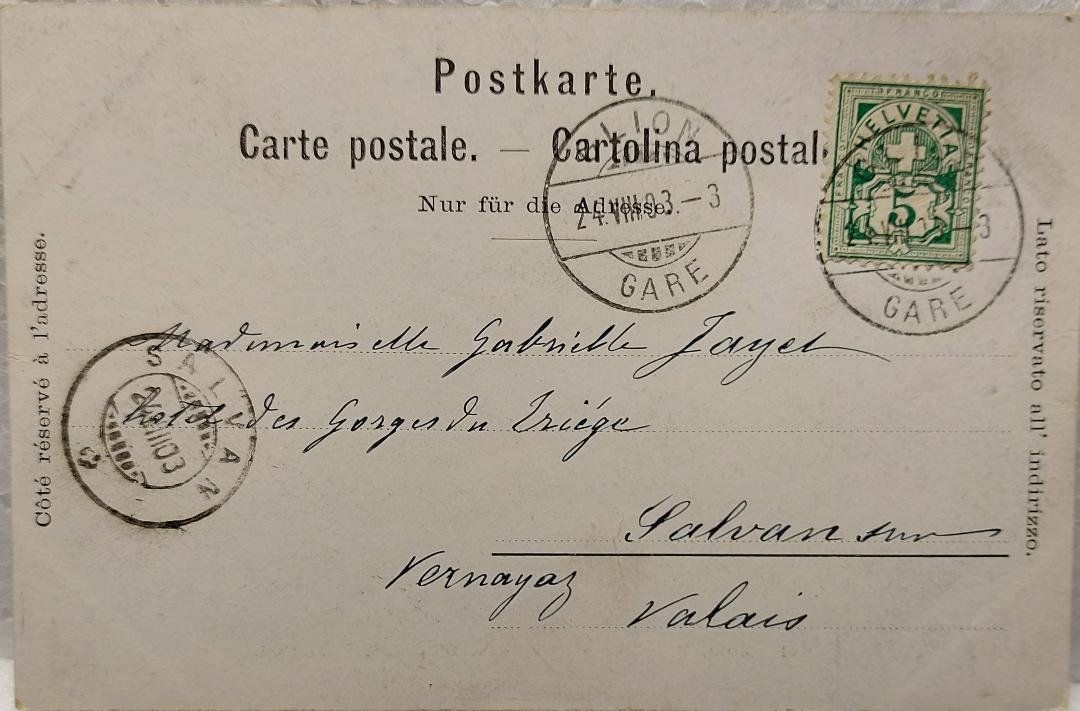 Postkarte.
Carte postale. — Cartolina postal
Nur für die Adresse.
Côté réservé à l'adresse.
Lato riservato all' indirizzo.
FRANCO
HELVETIA
5
LION
24.VIII.03 – 3
GARE
3
GARE
SALVAN
VIII 03
Mademoiselle Gabrielle Jayet
hotel des Gorges du Triége
Salvan sur
Vernayaz
Valais